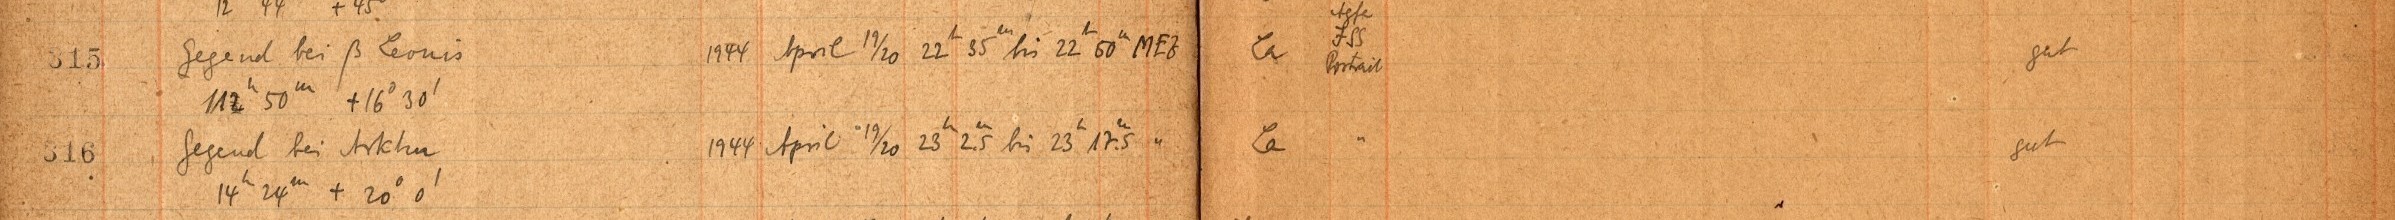 12 44 + 45°
Agfa
315 Gegend bei β Leonis 1944 April 19/20 22h 35m bis 22h 50m MEZ La ISS gut
Portrait
11h 50m +16° 30'
316 Gegend bei Arktur 1944 April 19/20 23h 2.5m bis 23h 17.5m " La " gut
14h 24m + 20° 0'